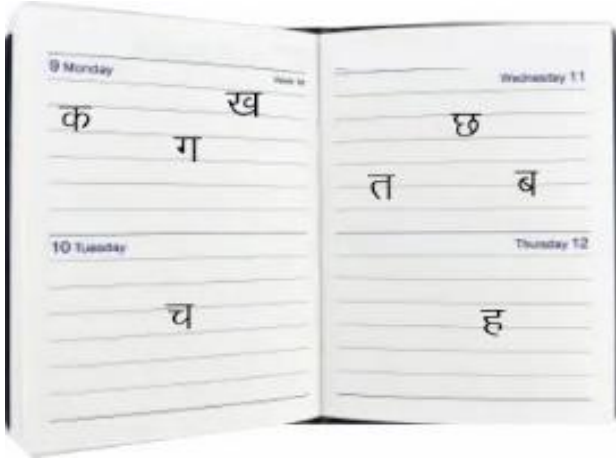 9 Monday
क ख
ग
10 Tuesday
च
Wednesday 11
छ
त ब
Thursday 12
ह